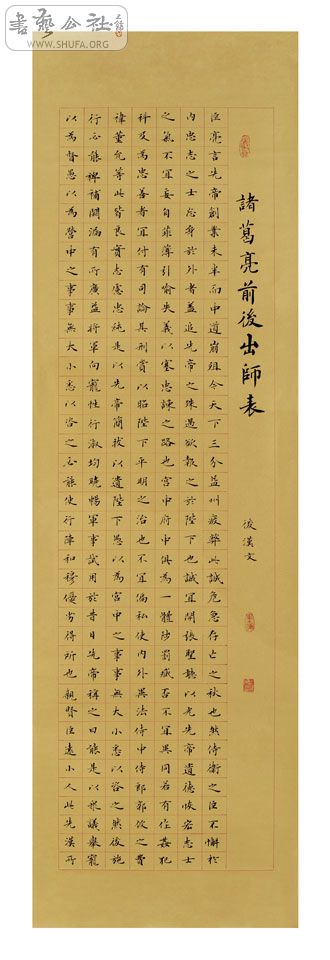 書藝公社
WWW.SHUFA.ORG
諸葛亮前後出師表
後漢文
臣亮言先帝創業未半而中道崩殂今天下三分益州疲弊此誠危急存亡之秋也然侍衛之臣不懈於
内忠志之士忘身於外者蓋追先帝之殊遇欲報之於陛下誠宜開張聖聽以光先帝遺德恢宏志士
之氣不宜妄自菲薄引喻失義以塞忠諫之路也宮中府中俱為一體陟罰臧否不宜異同若有作姦犯
科及為忠善者宜付有司論其刑賞以昭陛下平明之治也不宜偏私使内外異法侍中侍郎郭攸之費
禕董允等此皆良實志慮忠純是以先帝簡拔以遺陛下愚以為宮中之事事無大小悉以咨之然後施
行必能裨補闕漏有所廣益將軍向寵性行淑均曉暢軍事試用於昔日先帝稱之曰能是以衆議舉寵
以為督愚以為營中之事事無大小悉以咨之必能使行陣和穆優劣得所也親賢臣遠小人此先漢所